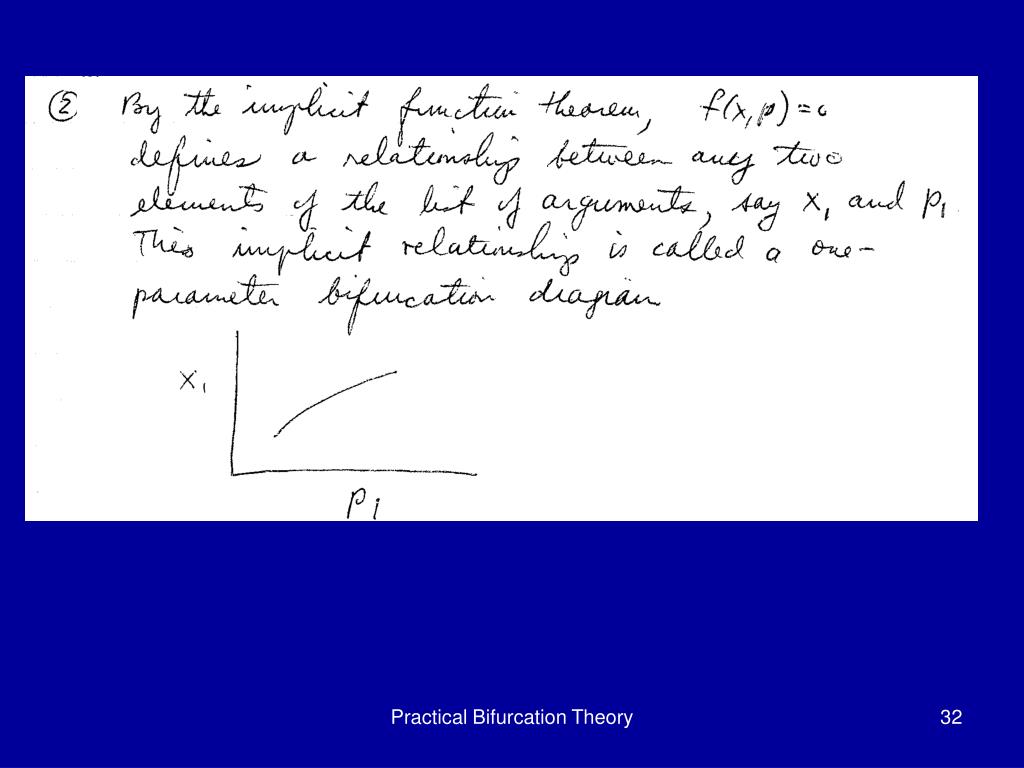 ② By the implicit function theorem, f(x,p)=0
defines a relationship between any two
elements of the list of arguments, say x₁ and p₁.
This implicit relationship is called a one-
parameter bifurcation diagram
x₁
p₁
Practical Bifurcation Theory
32